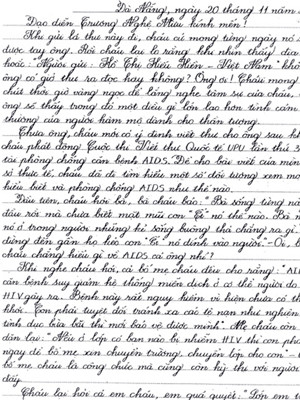 Đà Nẵng, ngày 20 tháng 11 năm
Đạo diễn Trương Nghệ Mưu kính mến!
Khi gửi lá thư này đi, cháu cứ mong từng ngày nó
được tay ông. Rồi cháu lại lo rằng khi nhìn thấy địa
hoắc: "Người gửi: Hồ Thị Hiếu Hiền - Việt Nam" khô
ông có giở thư ra đọc hay không? Ông ơi! Cháu mong
chút thời giờ vàng ngọc để lắng nghe tâm sự của cháu,
ông sẽ thấy trong đó một điều gì lớn lao hơn tình cảm
thường của người hâm mộ dành cho thần tượng.
Thưa ông, cháu mới có ý định viết thư cho ông sau kh
cháu phát động Cuộc thi Viết thư Quốc tế UPU lần thứ 3
tài phòng chống căn bệnh AIDS. Để cho bài viết của mìn
sở thực tế, cháu đã đi tìm hiểu một số đối tượng xem mọ
hiểu biết và phòng chống AIDS như thế nào.
Đầu tiên, cháu hỏi bà, bà cháu bảo: "Bà sống từng nà
đầu rồi mà chưa biết mặt mũi con "Ết" nó thế nào. Bà n
nó ở trong người những kẻ sống buông thả chẳng ra gì.
đừng đến gần họ kẻo con "Ết" nó dính vào người." - Ôi, b
cháu chẳng hiểu gì về AIDS cả ông nhỉ?
Khi nghe cháu hỏi, cả bố mẹ cháu đều cho rằng: "AI
căn bệnh suy giảm hệ thống miễn dịch ở cơ thể người do
HIV gây ra. Bệnh này rất nguy hiểm vì hiện chưa có th
khỏi. Con phải tuyệt đối tránh xa các tệ nạn như nghiện
tình dục bừa bãi thì mới bảo vệ được mình". Mẹ cháu còn
dặn lại: "Nếu ở lớp có bạn nào bị nhiễm HIV thì con phả
ngay để bố mẹ xin chuyển trường, chuyển lớp cho con" -
bố mẹ cháu là công chức mà cũng còn kỳ thị với người
đấy.
Cháu lại hỏi cả em cháu, em quả quyết: "Lớp em